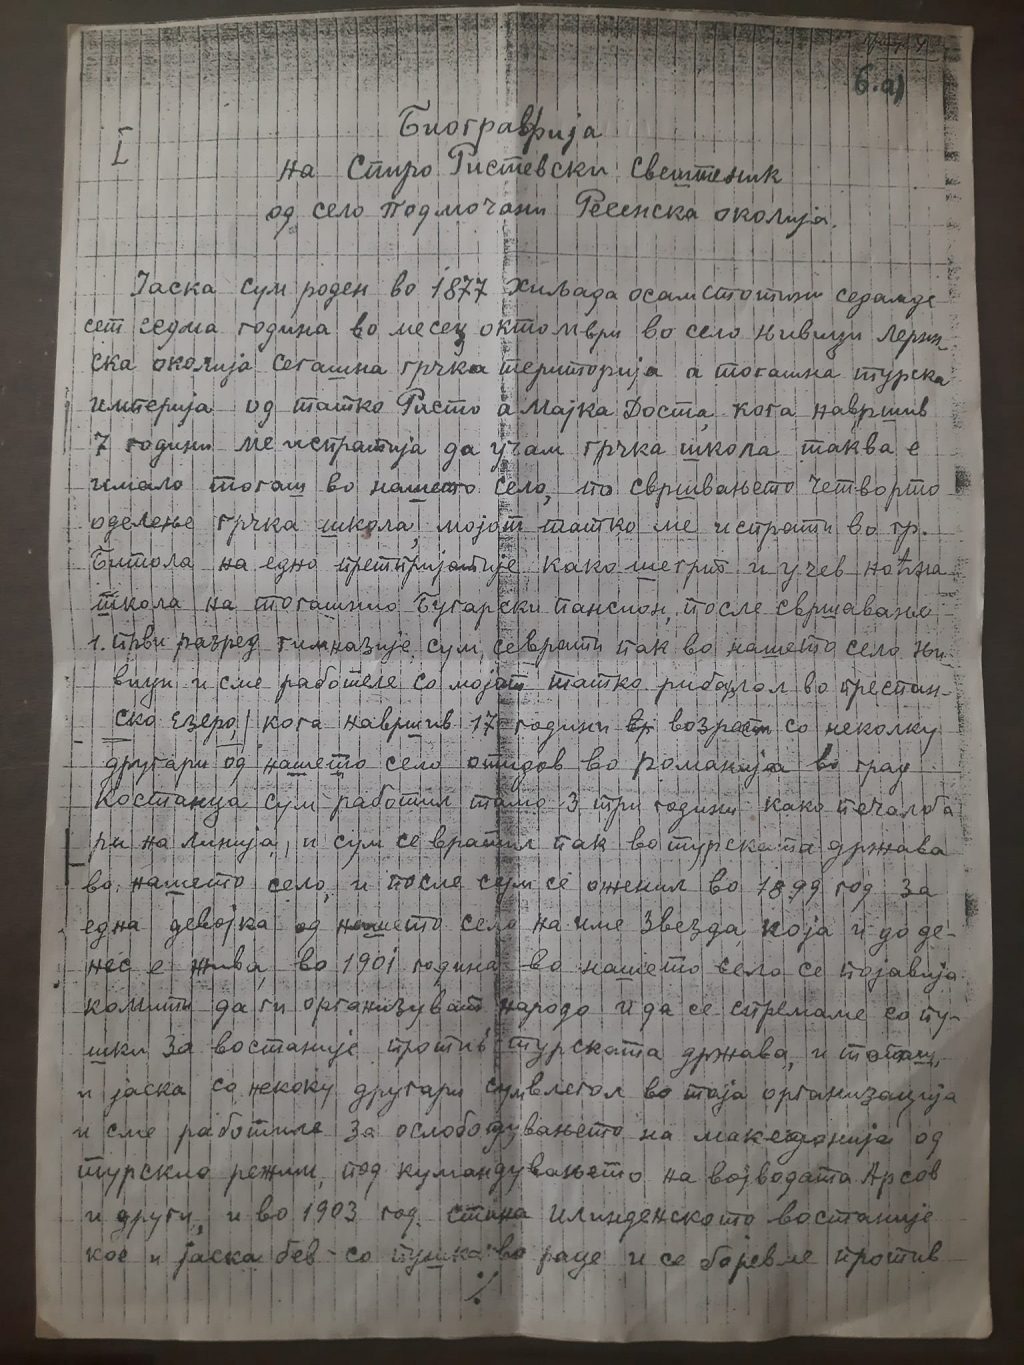 6.а)
I
Биографија
на Спиро Ристевски Свештеник
од село Подмочани Ресенска околија.
Јаска сум роден во 1877 хиљада осамстотини седамде
сет седма година во месец октомври во село Њивици Лерин-
ска околија сегашна грчка територија а тогашна турска
империја од татко Ристо а Мајка Доста, кога навршив
7 години ме испратија да учам грчка школа таква е
имало тогаш во нашето село, по свршвањето четворто
оделење грчка школа, мојот татко ме испрати во гр.
Битола на едно претпријатије како шегрт и учев ноќна
школа на тогашнио Бугарски пансион, после свршавање
1. први разред гимназије сум се врати пак во нашето село Њи
вици и сме работеле со мојот татко рибарлол во преспан-
ско езеро, кога навршив 17 години во возраст со неколку
другари од нашето село отидов во Романија во град
Костанца сум работил тамо 3 три години како печалба
ри на линија, и сум се вратил пак во турската држава
во нашето село, и после сум се оженил во 1899 год за
една девојка од нашето село на име Звезда, која и до де-
нес е жива, во 1901 година во нашето село се појавија
комити да ги организуват народо и да се спремаме со пу-
шки за востаније против турската држава, и тогаш,
и јаска со некоку другари сум влегол во таја организација
и сме работиле за ослободувањето на македонија од
турскио режим, под кумандувањето на војводата Арсов
и други, и во 1903 год. стана илинденското востаније
кое и јаска бев со пушка во раце и се боревме против
./.